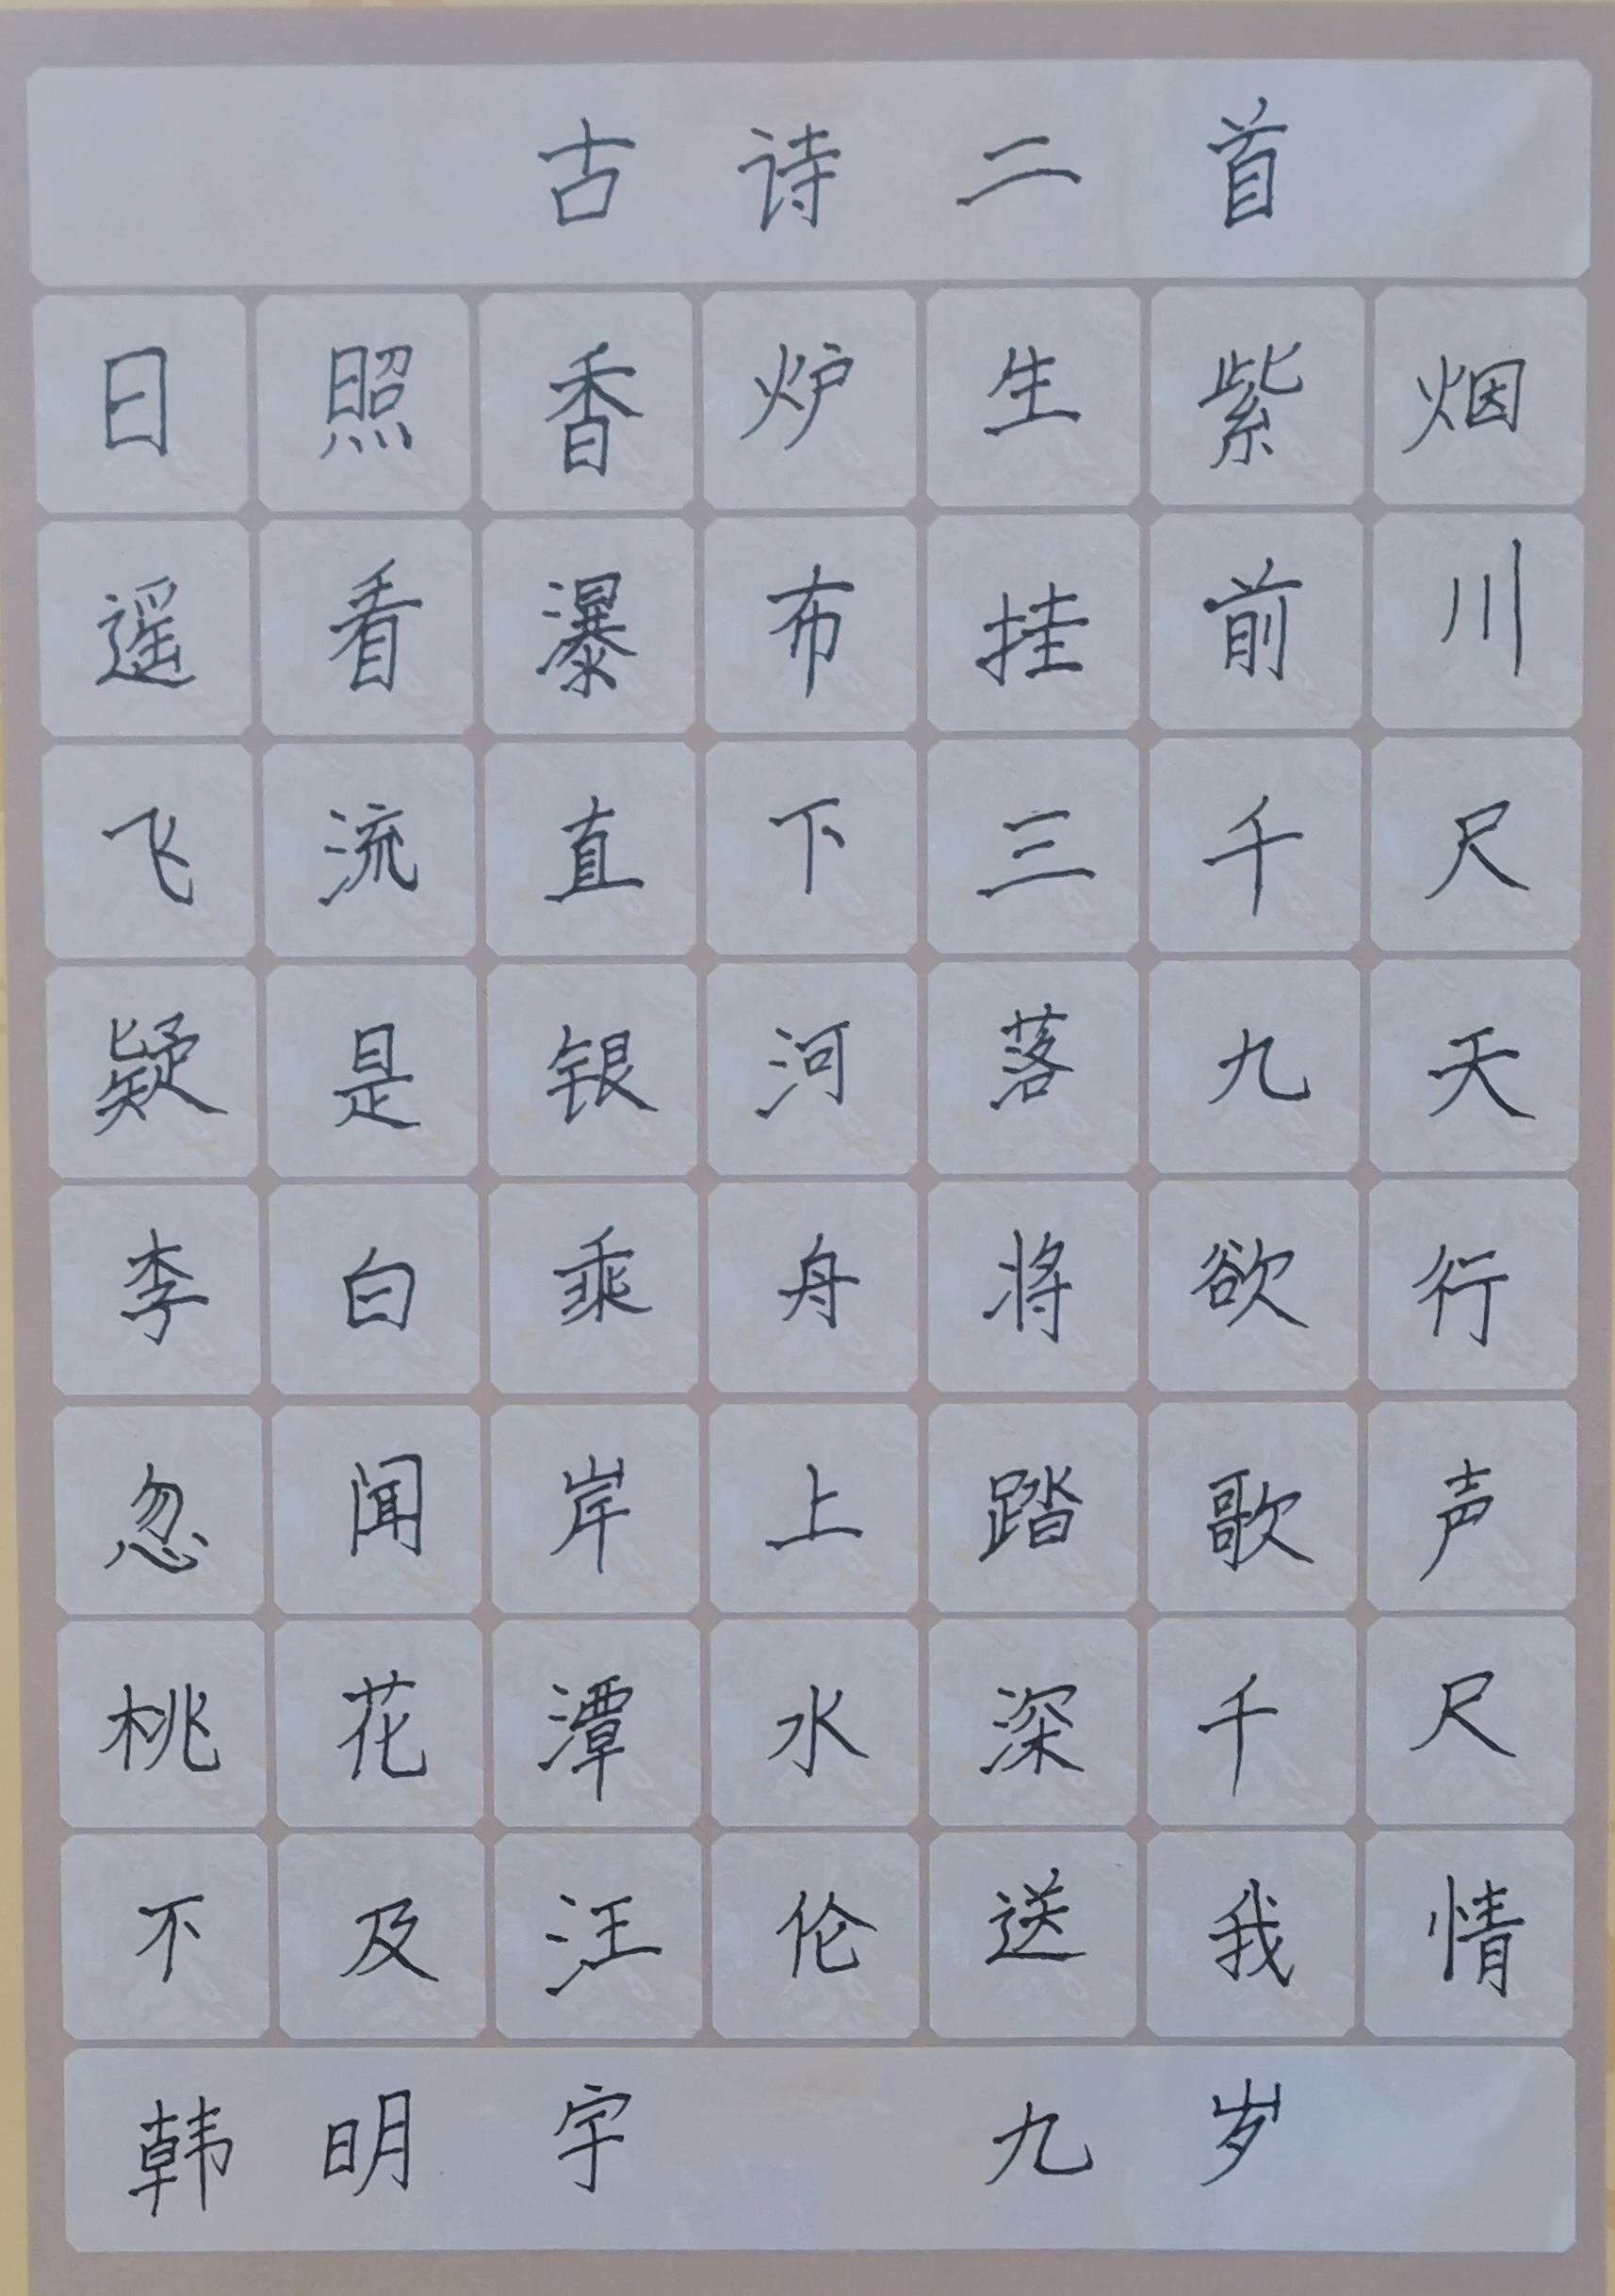 古诗二首
日照香炉生紫烟
遥看瀑布挂前川
飞流直下三千尺
疑是银河落九天
李白乘舟将欲行
忽闻岸上踏歌声
桃花潭水深千尺
不及汪伦送我情
韩明宇 九岁